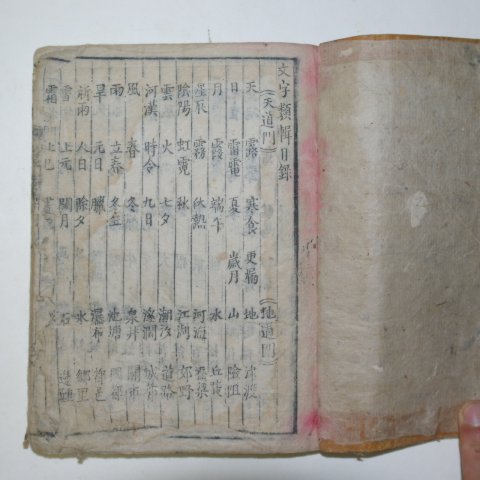 文字類輯目錄
(天道門) (地道門)
天 露 寒食 更漏 地 津渡
日 雷電 夏 歲月 山 險阻
月 霞 端午 水 丘陵
星辰 霧 伏熱 河海
陰陽 虹霓 秋 江湖 郊野
雲 火 七夕 潮汐 道路
河漢 時令 九日 溪澗
風 春 冬 泉井
雨 立春 冬至 池塘
旱 元日 臘 瀑布
祈雨 人日 除夕 水 鄉里
雪 上元 閏月 石
霜 上巳